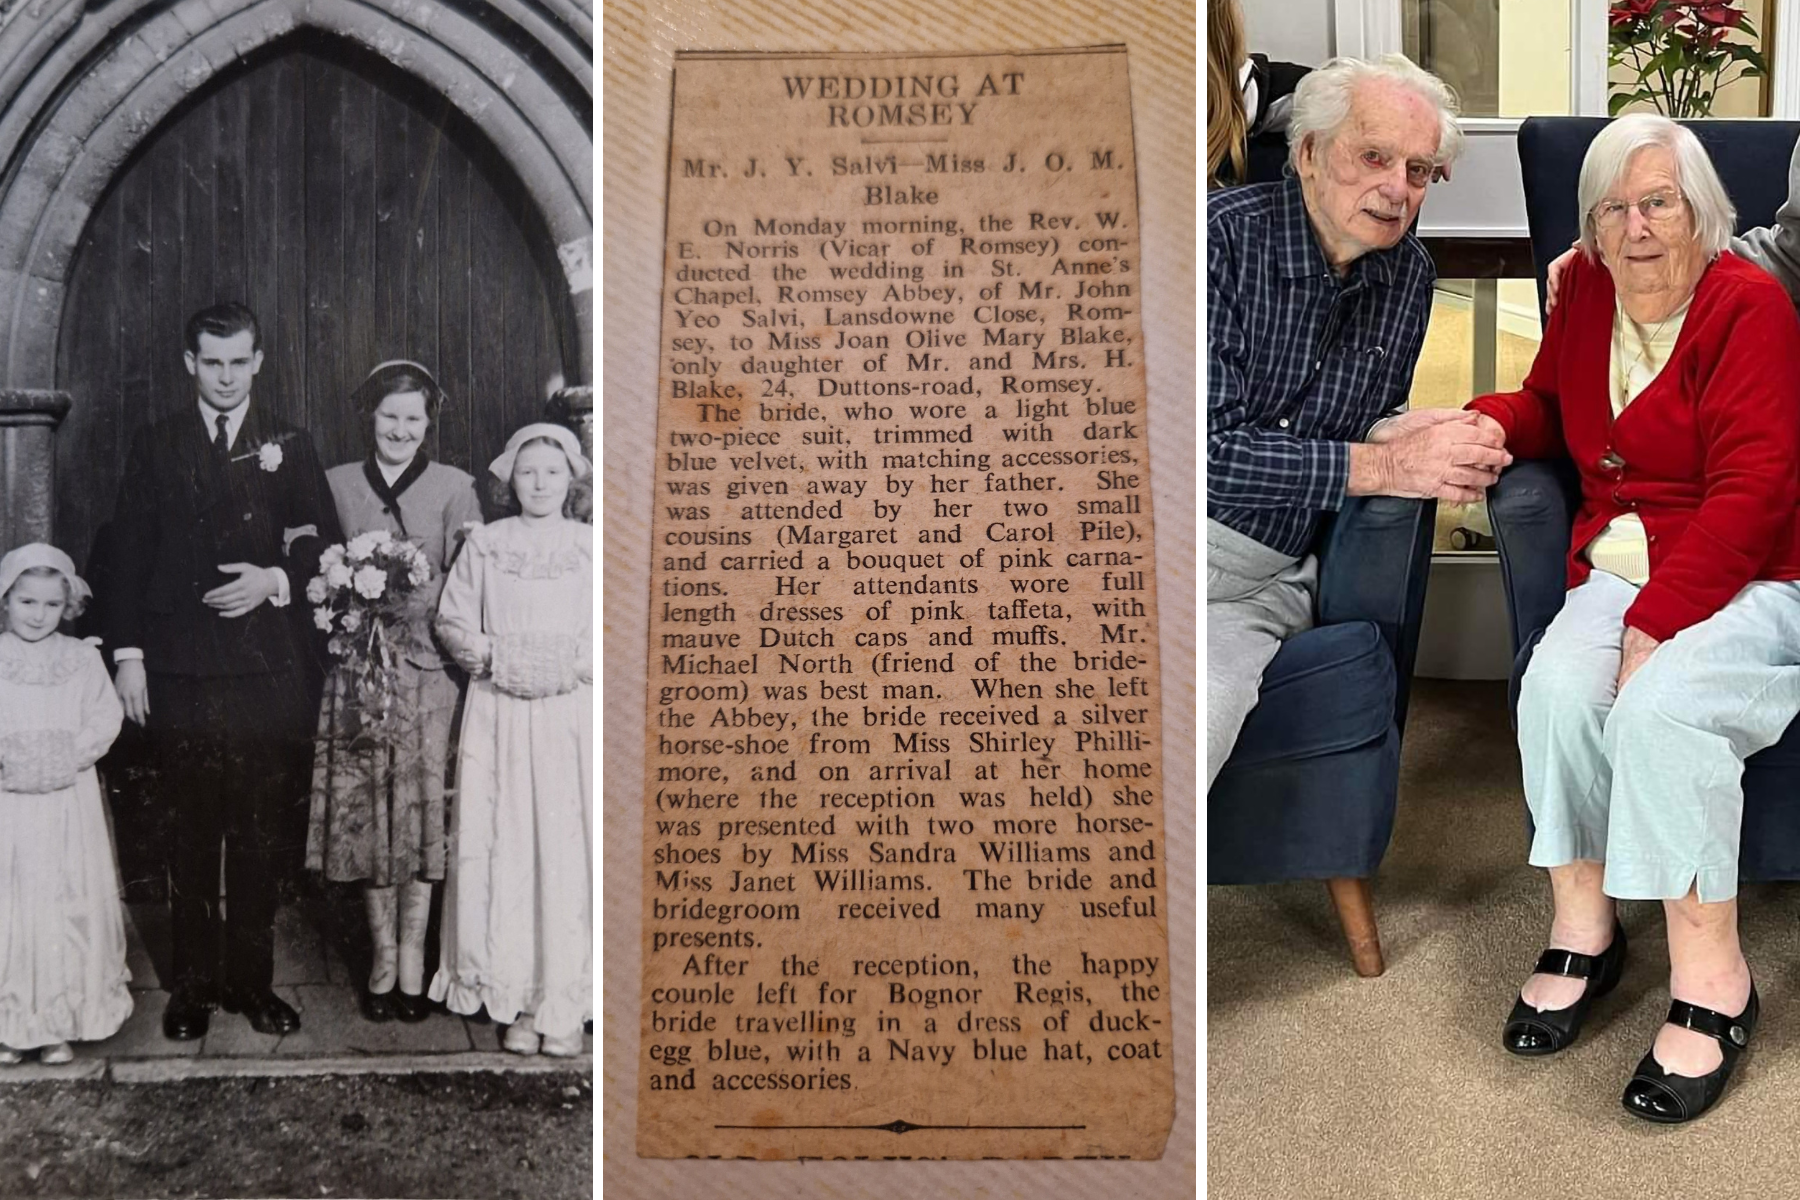 WEDDING AT
ROMSEY
Mr. J. Y. Salvi—Miss J. O. M.
Blake
On Monday morning, the Rev. W.
E. Norris (Vicar of Romsey) con-
ducted the wedding in St. Anne's
Chapel, Romsey Abbey, of Mr. John
Yeo Salvi, Lansdowne Close, Rom-
sey, to Miss Joan Olive Mary Blake,
only daughter of Mr. and Mrs. H.
Blake, 24, Duttons-road, Romsey.
The bride, who wore a light blue
two-piece suit, trimmed with dark
blue velvet, with matching accessories,
was given away by her father. She
was attended by her two small
cousins (Margaret and Carol Pile),
and carried a bouquet of pink carna-
tions. Her attendants wore full
length dresses of pink taffeta, with
mauve Dutch caps and muffs. Mr.
Michael North (friend of the bride-
groom) was best man. When she left
the Abbey, the bride received a silver
horse-shoe from Miss Shirley Philli-
more, and on arrival at her home
(where the reception was held) she
was presented with two more horse-
shoes by Miss Sandra Williams and
Miss Janet Williams. The bride and
bridegroom received many useful
presents.
After the reception, the happy
couple left for Bognor Regis, the
bride travelling in a dress of duck-
egg blue, with a Navy blue hat, coat
and accessories.